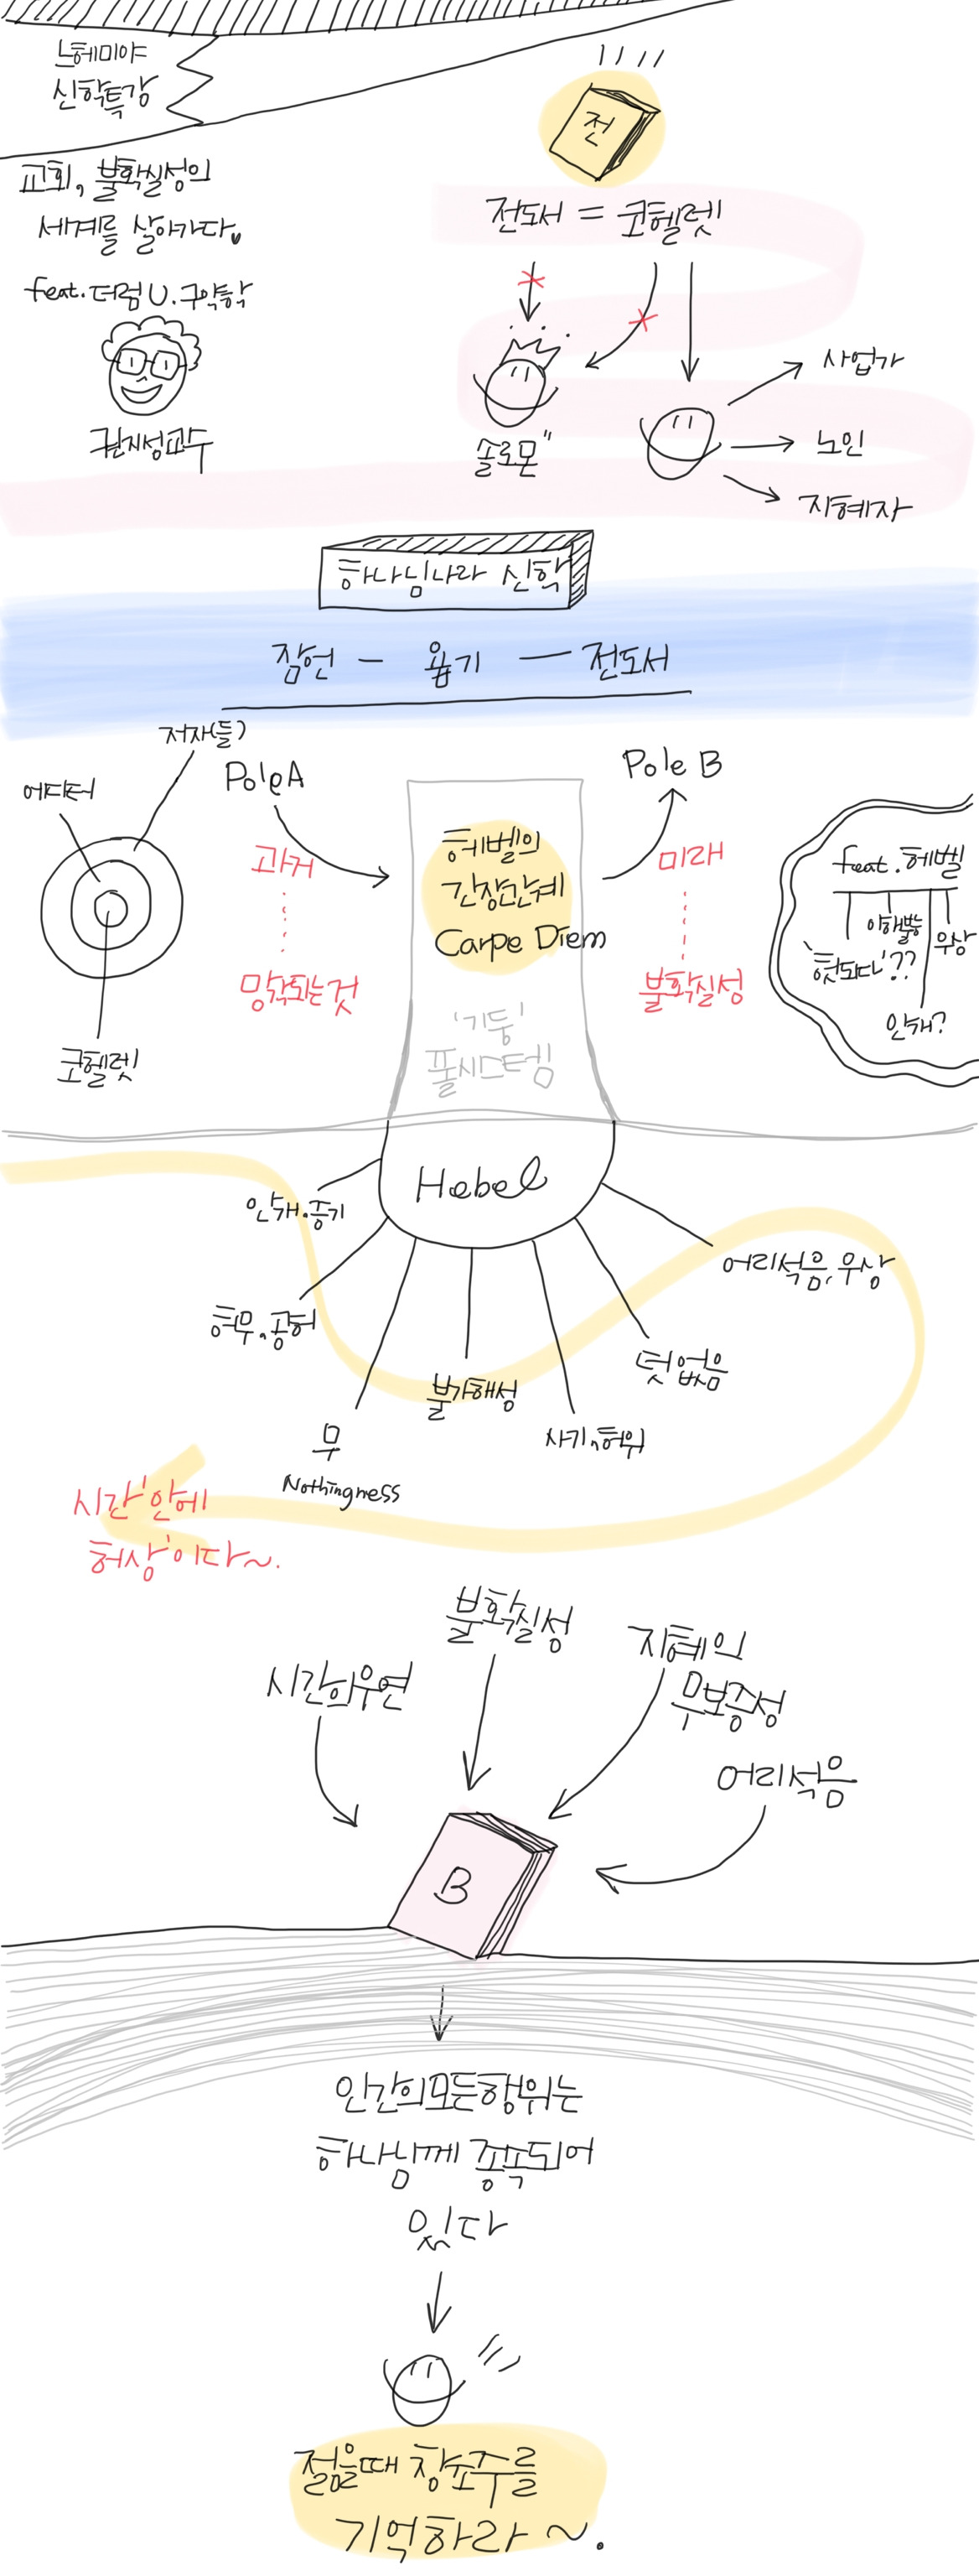 느헤미야
신학특강
교회, 불확실성의
세계를 살아가다.
feat. 더럼 U. 구약학
권지성교수
전
전도서 = 코헬렛
솔로몬"
사업가
노인
지혜자
하나님나라 신학
잠언 - 욥기 - 전도서
저자(들)
에디터
코헬렛
Pole A
과거
망각되는 것
헤벨의
긴장관계
Carpe Diem
'기둥'
풀시스템
Pole B
미래
불확실성
feat. 헤벨
'헛되다'??
이해불능
안개?
우상
Hebel
안개.증기
허무.공허
무
Nothingness
불가해성
사기.허위
덧없음
어리석음.우상
시간'안에
허상'이다~.
시간의우연
불확실성
지혜의
무보증성
어리석음
B
인간의모든행위는
하나님께 종속되어
있다
젊을때 창조주를
기억하라 ~.